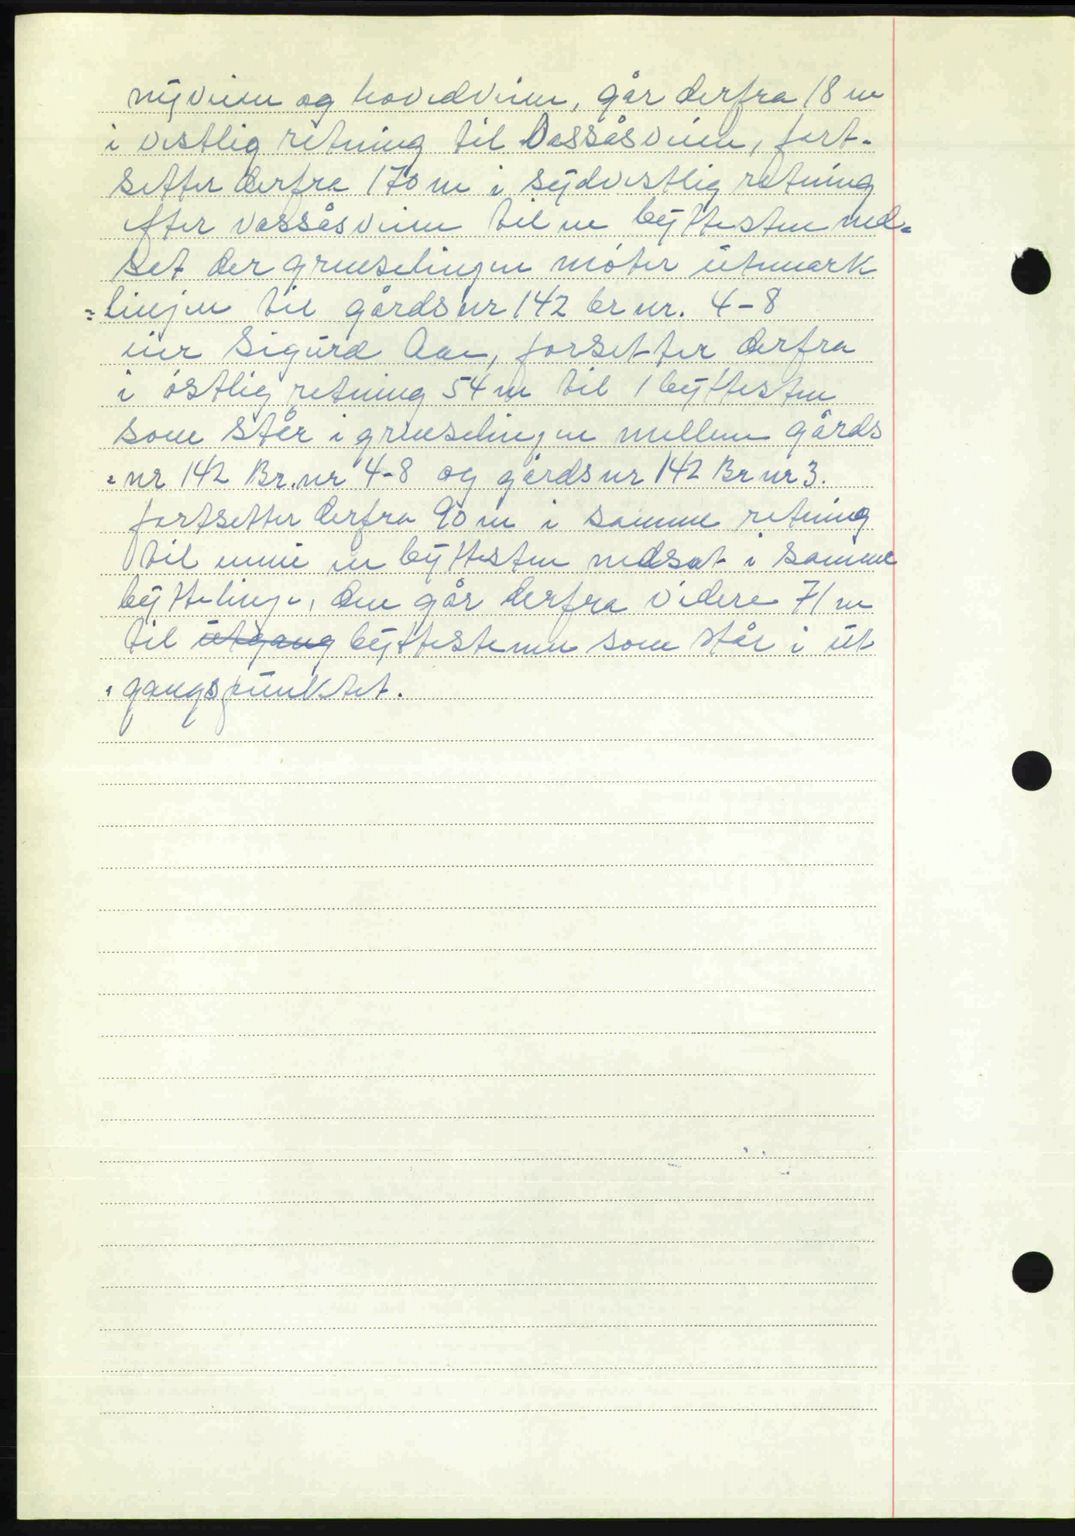 nyveien og hovedveien, går derfra 18 m
i vestlig retning til Vassåsveien, fort-
setter derfra 170 m i sydvestlig retning
efter vassåsveien til en byttesten ned-
sat der grenselinjen møter utmark
=linjen til gårdsnr 142 brnr. 4-8
eier Sigurd Aae, forsetter derfra
i østlig retning 54 m til 1 byttesten
som står i grenselinjen mellem gårds
=nr 142 Br.nr 4-8 og gårdsnr 142 Br nr 3.
fortsetter derfra 90 m i samme retning
til ennu en byttesten nedsat i samme
byttelinje, den går derfra videre 71 m
til utgang byttestenen som står i ut
-gangspunktet.